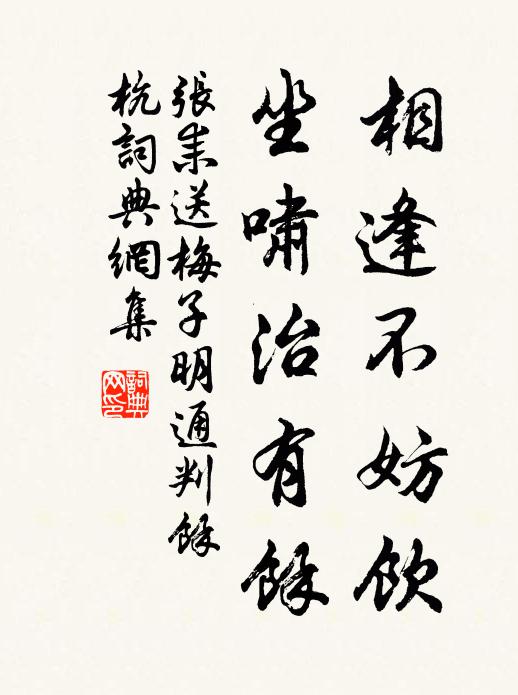 相逢不妨飲
坐嘯治有餘
張耒送梅子明通判餘
杭詞典網集
詞典
网印